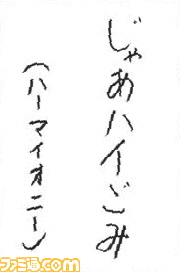 じゃあハイごみ
（ハーマイオニー）
ファミ通.com